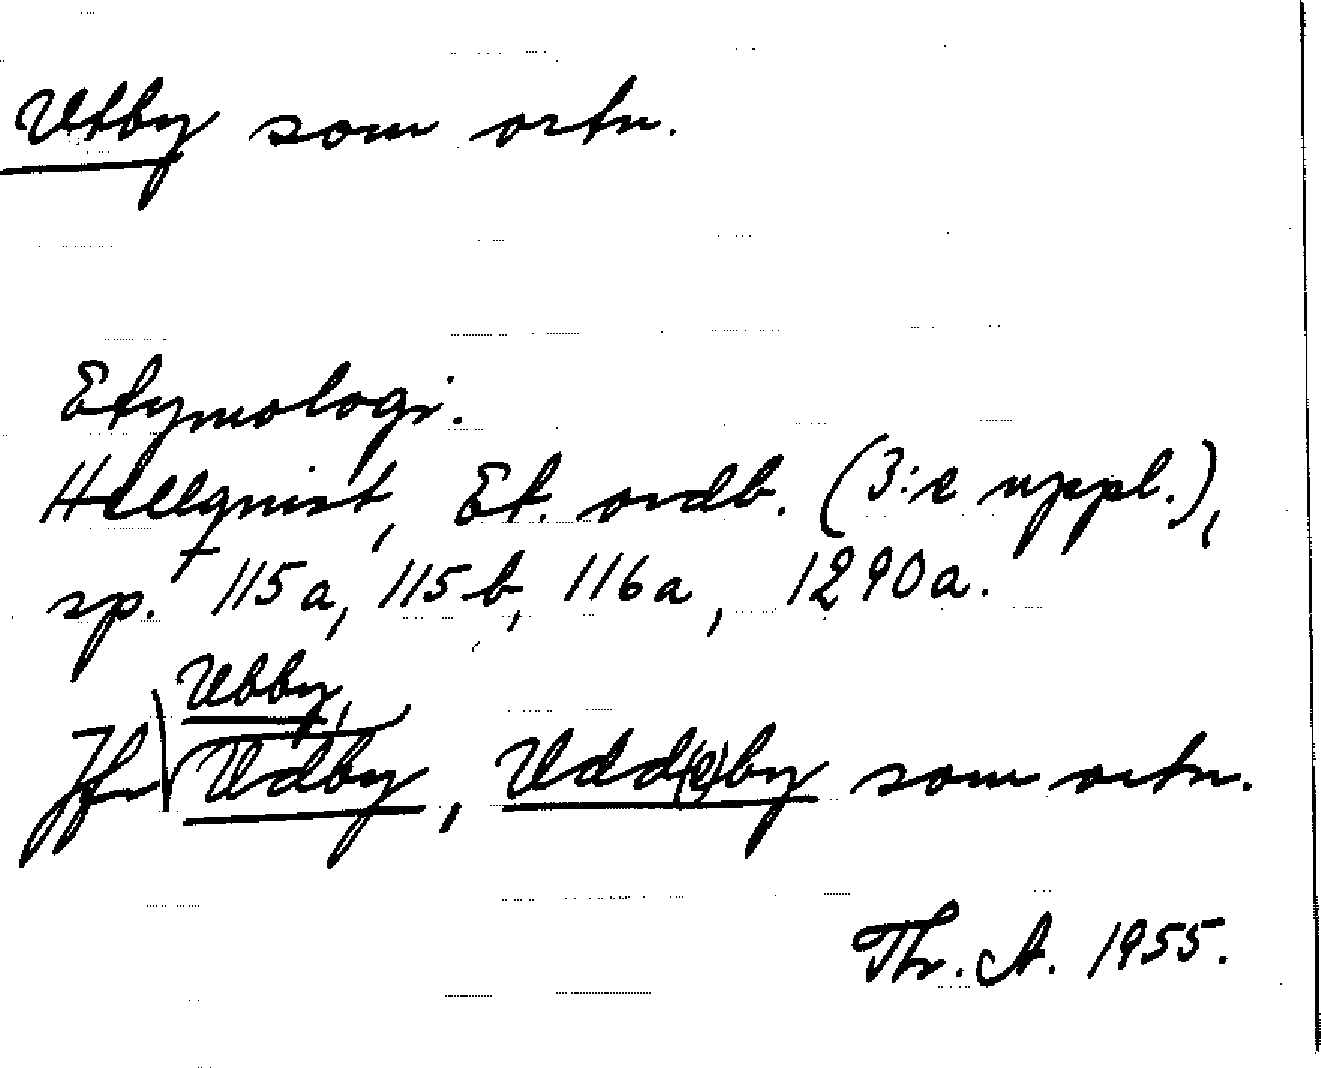 Utby som ortn.
Etymologi.
Hellquist, Et. ordb. (3:e uppl.),
sp. 115a, 115b, 116a, 1290a.
Ubby,
Jfr Udby, Udd(e)by som ortn.
Thr. A. 1955.